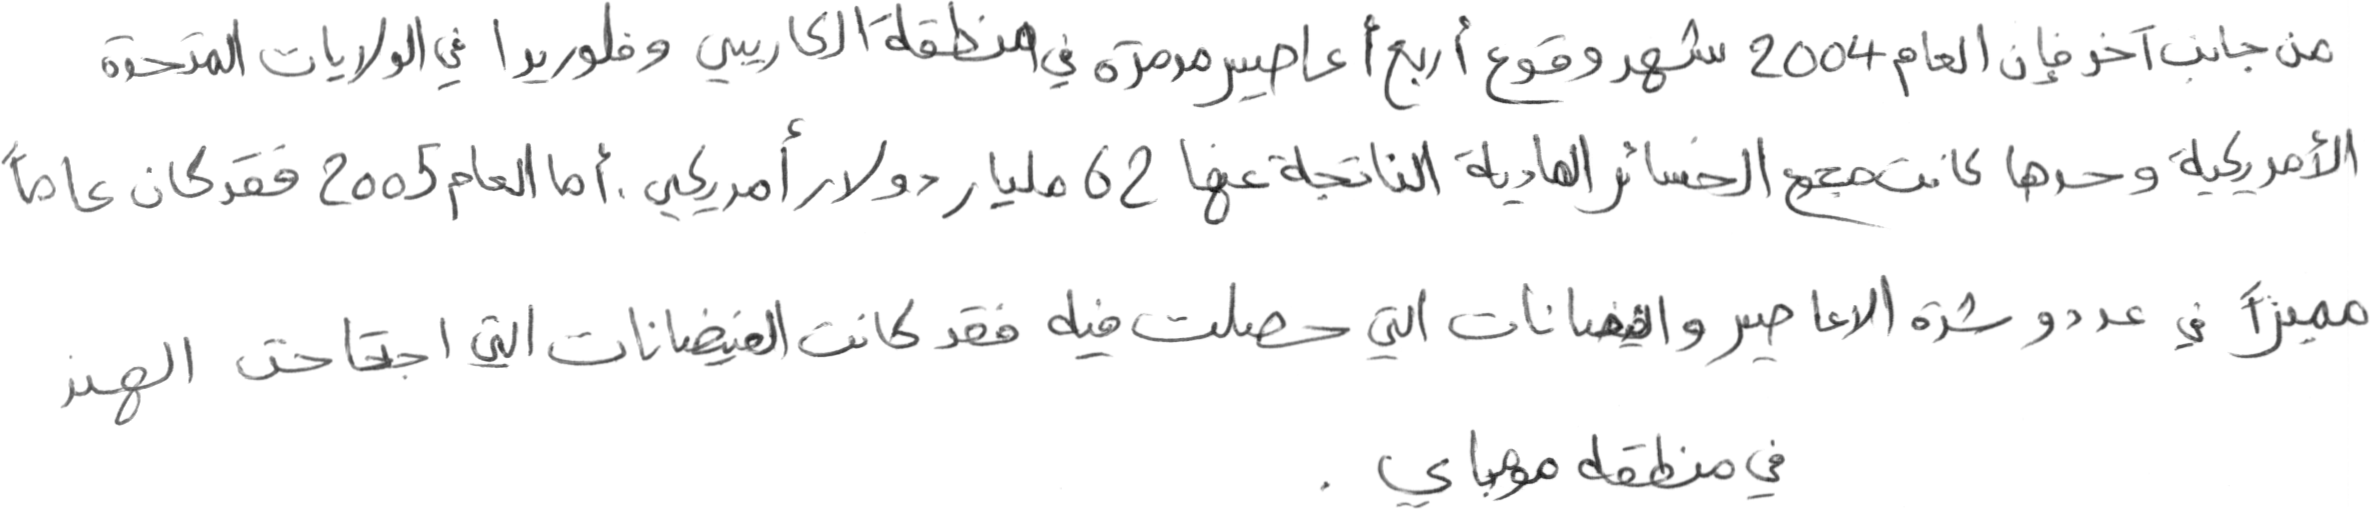 من جانب آخر فإن العام 2004 شهد وقوع أربع أعاصير مدمرة في منطقة الكاريبي وفلوريدا في الولايات المتحدة
الأمريكية وحدها كانت مجمع الخسائر المادية الناتجة عنها 62 مليار دولار أمريكي . أما العام 2005 فقد كان عاماً
مميزاً في عدد و شدة الاعاصير والفيضانات التي حصلت فيه فقد كانت الفيضانات التي اجتاحت الهند
في منطقه مومباي .